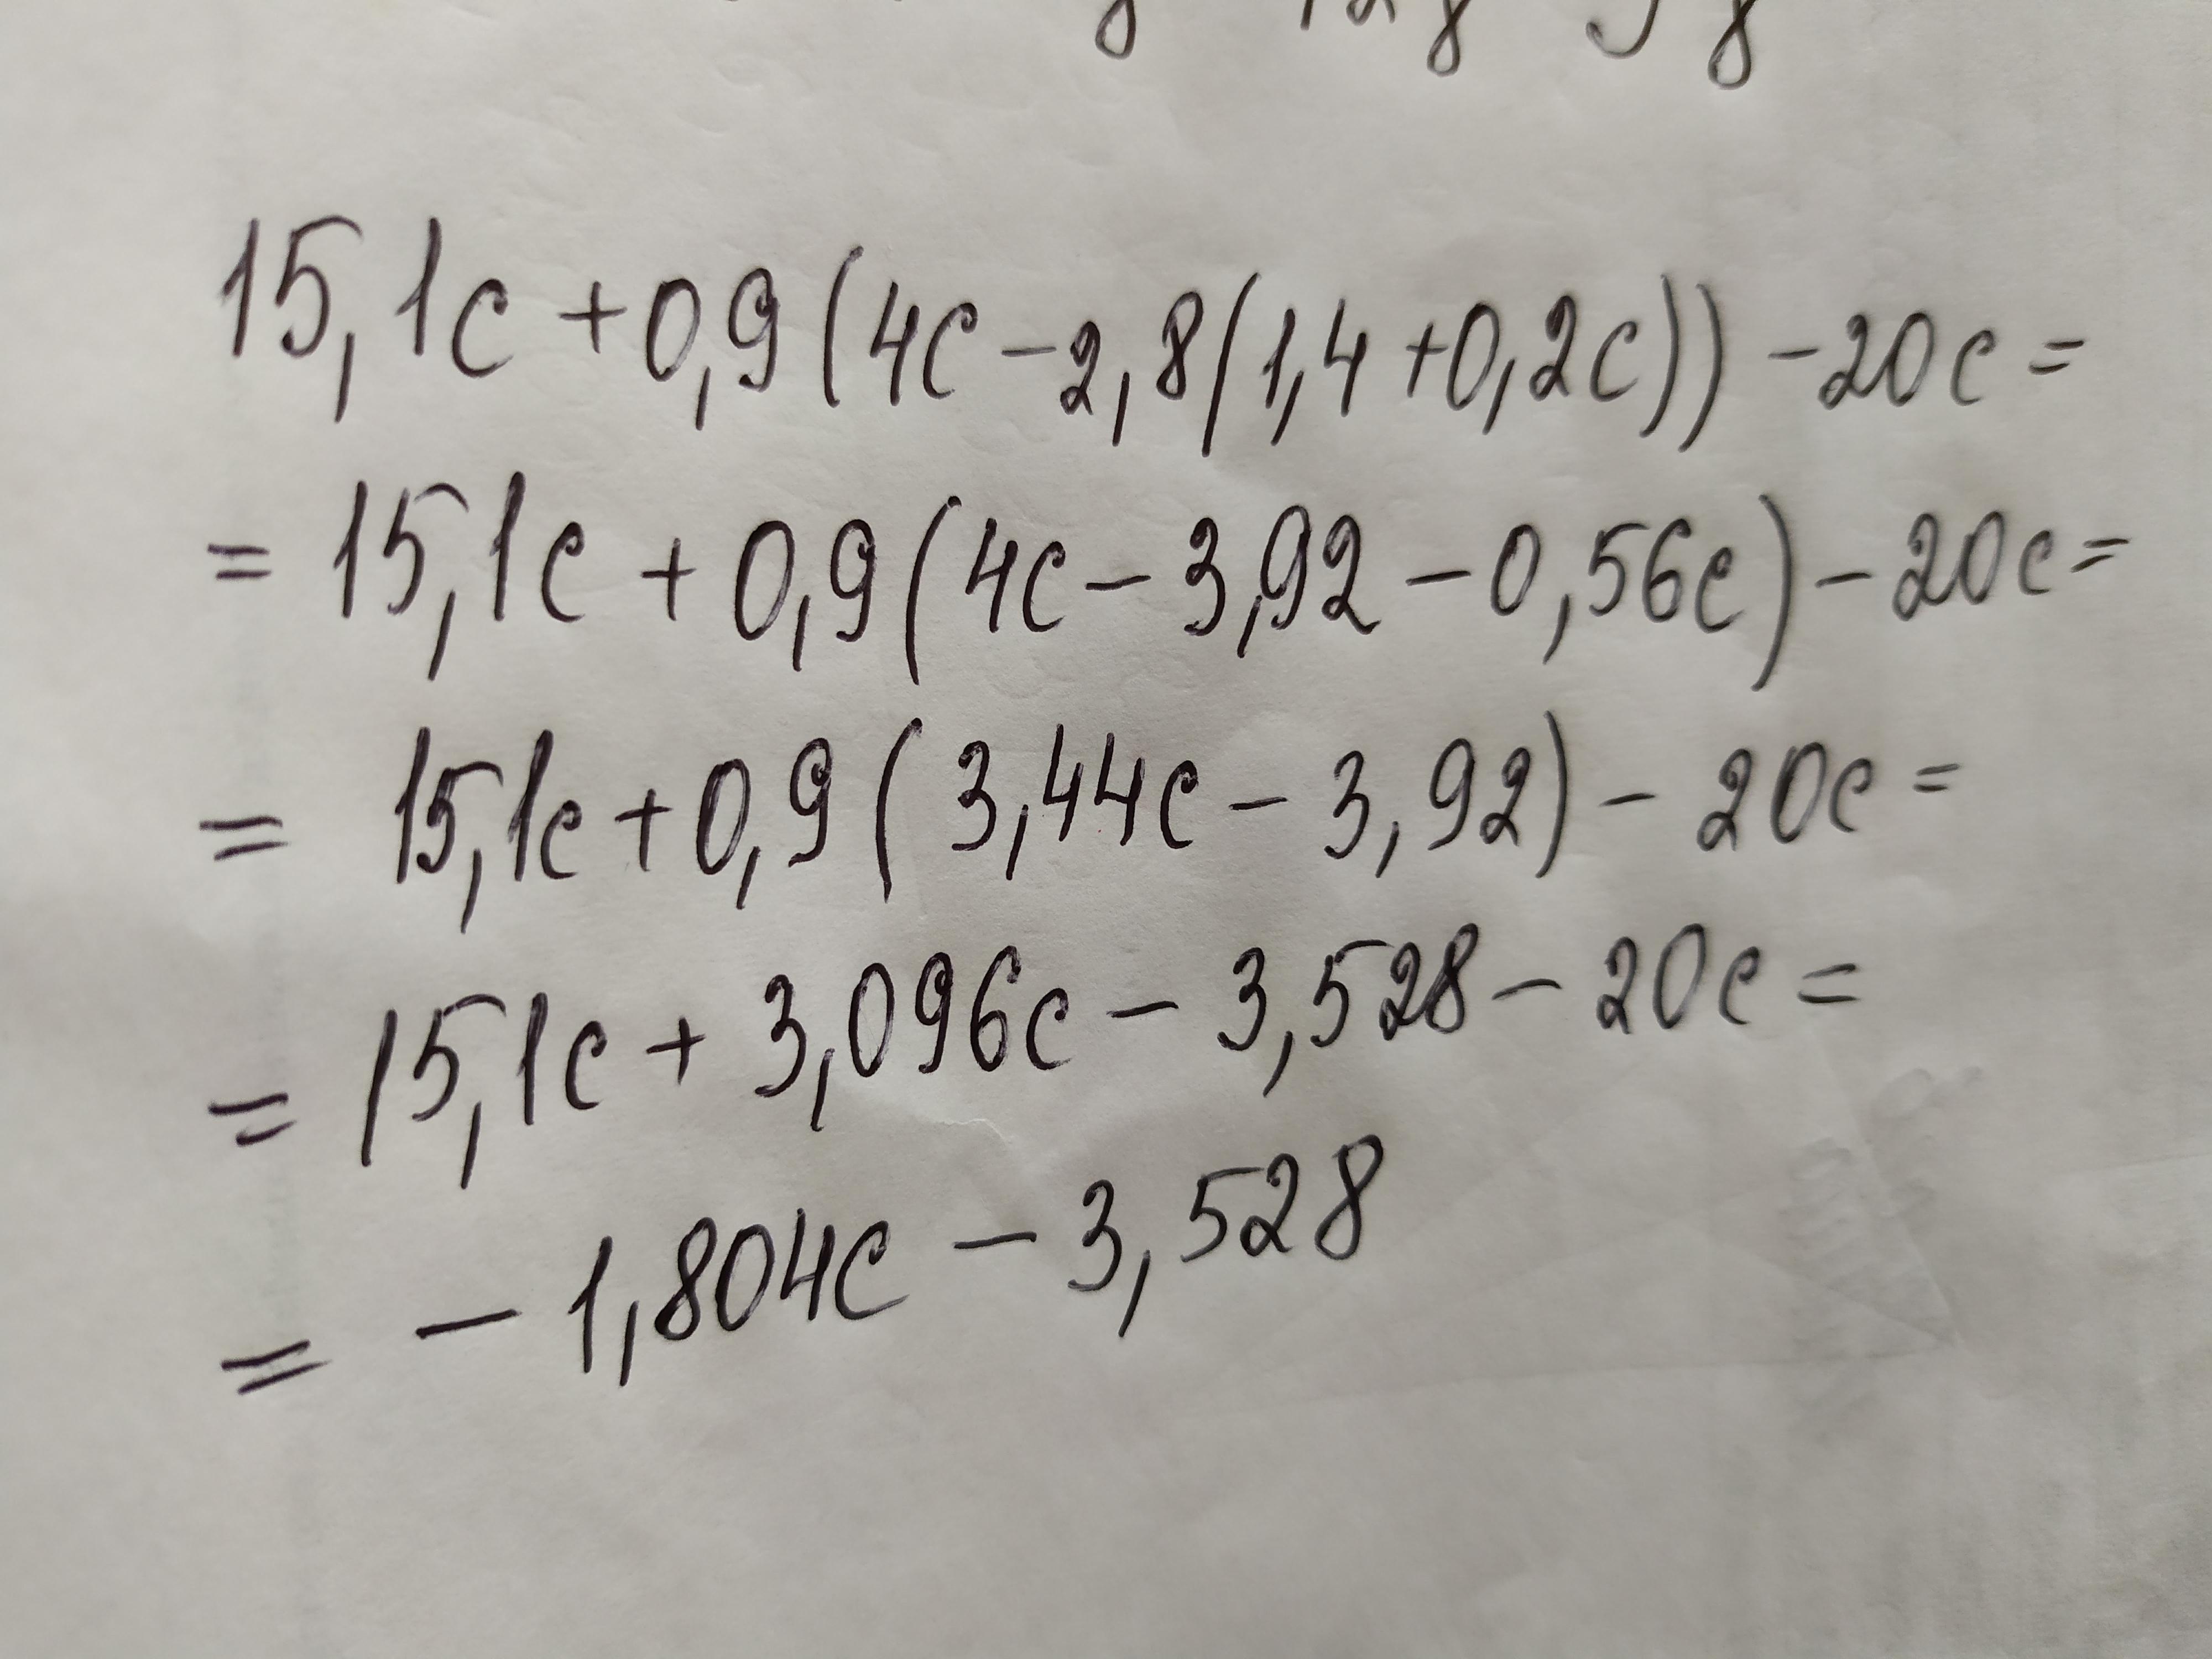 15,1c + 0,9 (4c - 2,8 (1,4 + 0,2c)) - 20c =
= 15,1c + 0,9 (4c - 3,92 - 0,56c) - 20c =
= 15,1c + 0,9 (3,44c - 3,92) - 20c =
= 15,1c + 3,096c - 3,528 - 20c =
= - 1,804c - 3,528